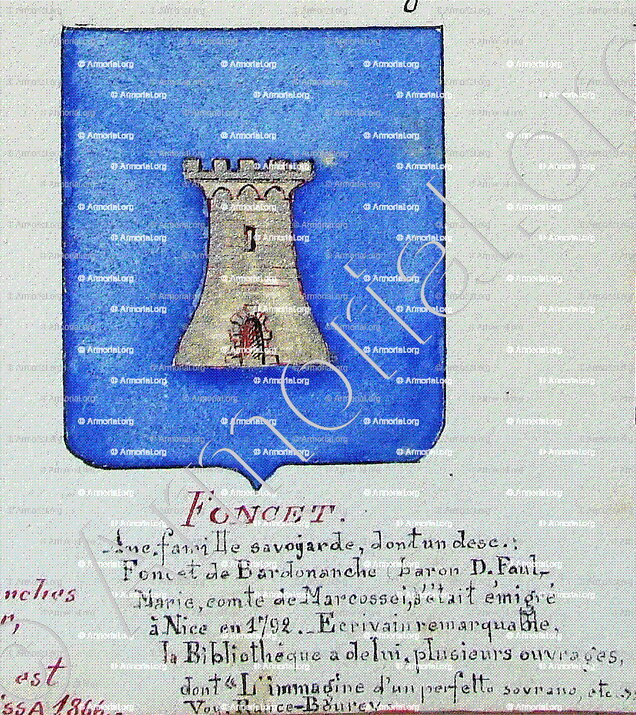 FONCET.
Anc. famille savoyarde, dont un desc.:
Foncet de Bardonanche (baron D. Paul-
Marie, comte de Marcossei, s'était émigré
à Nice en 1792._ Ecrivain remarquable,
la Bibliothéque a de lui, plusieurs ouvrages,
dont "L'immagine d'un perfetto sovrano, etc.
nches
r,
est
© Armorial.org